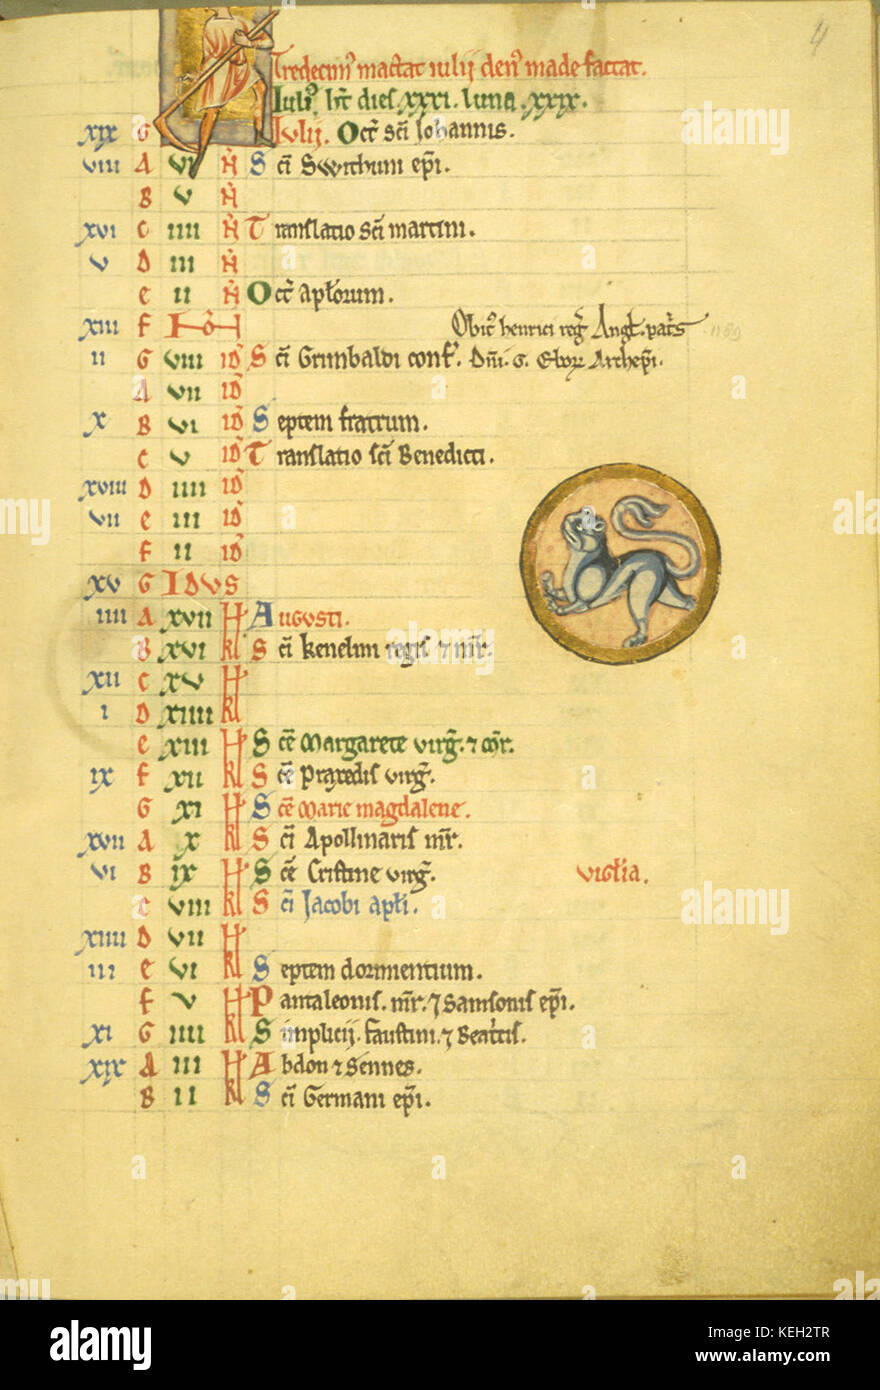 4
Tredecim' mactat iulij den' made factat.
Iuli' ħt dies xxxi. luna. xxix.
xix G Iulij. Oct' sc̄i Iohannis.
viii A vi N S c̄i Swithuni ep̄i.
B v N
xvi C iiii N T ranslatio sc̄i martini.
v D iii N
E ii N O ct' apl'orum.
xiii F Obit' henrici reg' Angl'. pat's 1189
ii G viii id' S c̄i Grimbaldi conf'. Dn̄i. G. Ebor' Archep̄i.
A vii id'
x B vi id' S eptem fratrum.
C v id' T ranslatio sc̄i Benedicti.
xviii D iiii id'
vii E iii id'
F ii id'
xv G IDVS
iiii A xvii kl A ugusti.
B xvi kl S c̄i kenelmi regis ⁊ mr̄.
xii C xv kl
i D xiiii kl
E xiii kl S c̄e Margarete virḡ. ⁊ mr̄.
ix F xii kl S c̄e Praxedis virḡ.
G xi kl S c̄e Marie magdalene.
xvii A x kl S c̄i Apollinaris mr̄.
vi B ix kl S c̄e Cristine virḡ. vigl'ia.
C viii kl S c̄i Jacobi apl'i.
xiiii D vii kl
iii E vi kl S eptem dormientium.
F v kl P antaleonis. mr̄. ⁊ Samsonis ep̄i.
xi G iiii kl S implicij. faustini. ⁊ Beat'cis.
xix A iii kl A bdon ⁊ Sennes.
B ii kl S c̄i Germani ep̄i.
alamy stock photo
Image ID: KEH2TR
www.alamy.com